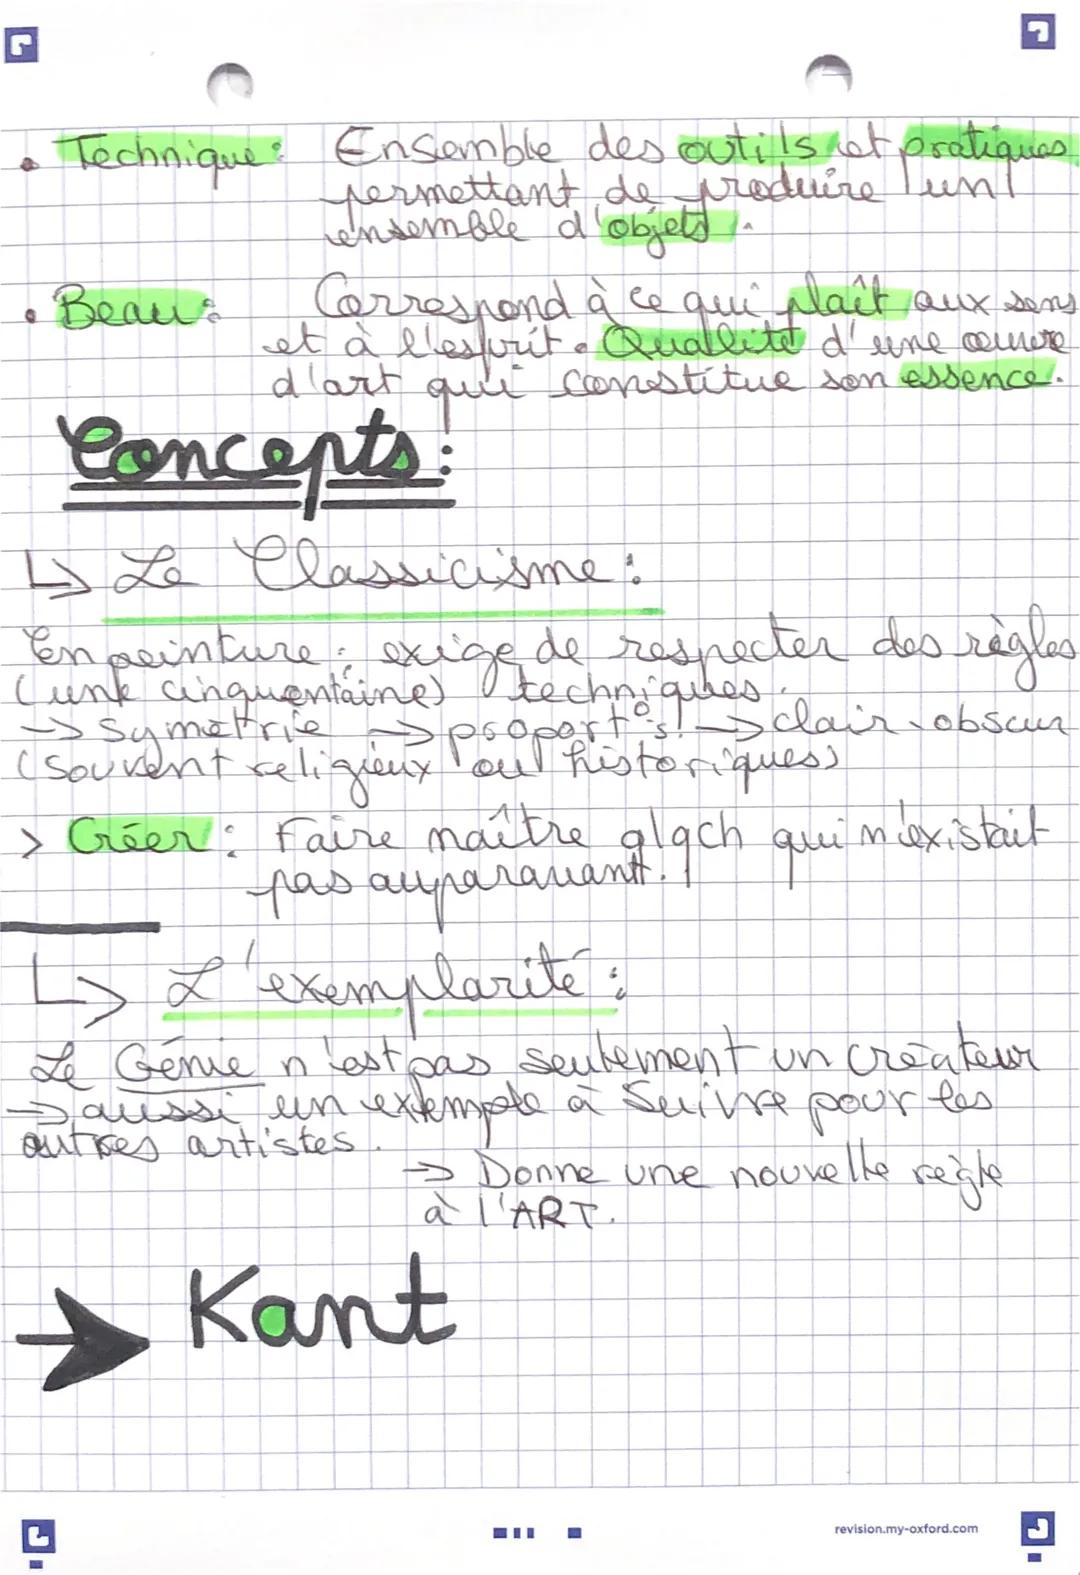 • Technique : Ensemble des outils et pratiques
permettant de produire un
ensemble d'objets.
• Beau : Correspond à ce qui plaît aux sens
et à l'esprit. Qualité d'une œuvre
d'art qui constitue son essence.
Concepts :
↳ Le Classicisme :
En peinture : exige de respecter des règles
(une cinquantaine) techniques.
-> Symétrie -> proport°s! -> clair-obscur
(Souvent religieux ou historiques)
> Créer : Faire naître qlqch qui n'existait
pas auparavant.
↳ L'exemplarité :
Le Génie n'est pas seulement un créateur
-> aussi un exemple à Suivre pour les
autres artistes.
-> Donne une nouvelle règle
à l'ART.
→ Kant
revision.my-oxford.com